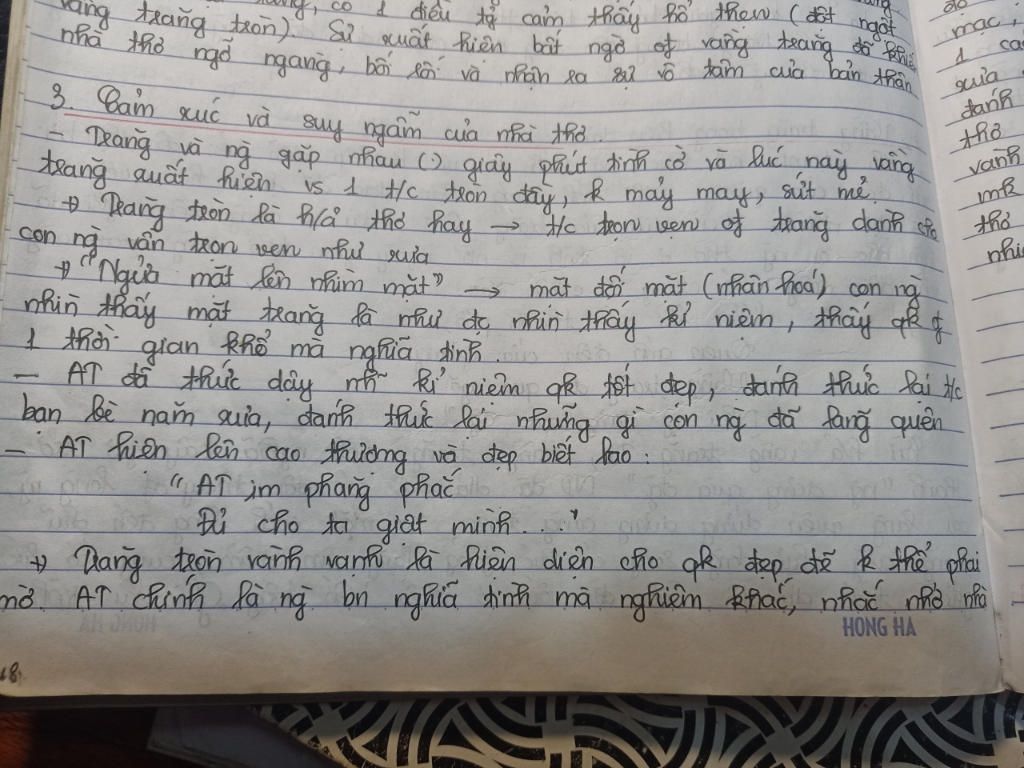 có 1 điều tự cảm thấy hổ thẹn (đột ngột
vầng trăng tròn). Sự xuất hiện bất ngờ of vầng trăng đã khiế
nhà thơ ngỡ ngàng, bối rối và nhận ra sự vô tâm của bản thân
3. Cảm xúc và suy ngẫm của nhà thơ.
- Trăng và ng gặp nhau (.) giây phút tình cờ và lúc này vầng
trăng xuất hiện vs 1 t/c tròn đầy, k mảy may, sứt mẻ.
→ Trăng tròn là h/ả thơ hay → t/c trọn vẹn of trăng dành cho
con ng vẫn trọn vẹn như xưa
→ "Ngửa mặt lên nhìn mặt" → mặt đối mặt (nhân hoá) con ng
nhìn thấy mặt trăng là như đc nhìn thấy kỉ niệm, thấy qk of
1 thời gian khổ mà nghĩa tình.
- AT đã thức dậy nh~ kỉ niệm qk tốt đẹp, đánh thức lại t/c
bạn bè năm xưa, đánh thức lại những gì con ng đã lãng quên
- AT hiện lên cao thượng và đẹp biết bao:
"AT im phăng phắc
Đủ cho ta giật mình..."
→ Trăng tròn vành vạnh là hiện diện cho qk đẹp đẽ k thể phai
mờ. AT chính là ng bn nghĩa tình mà nghiêm khắc, nhắc nhở nhà
HONG HA
18
mạc,
1
xưa
đánh
thơ
vành
mk
thơ
nhiê